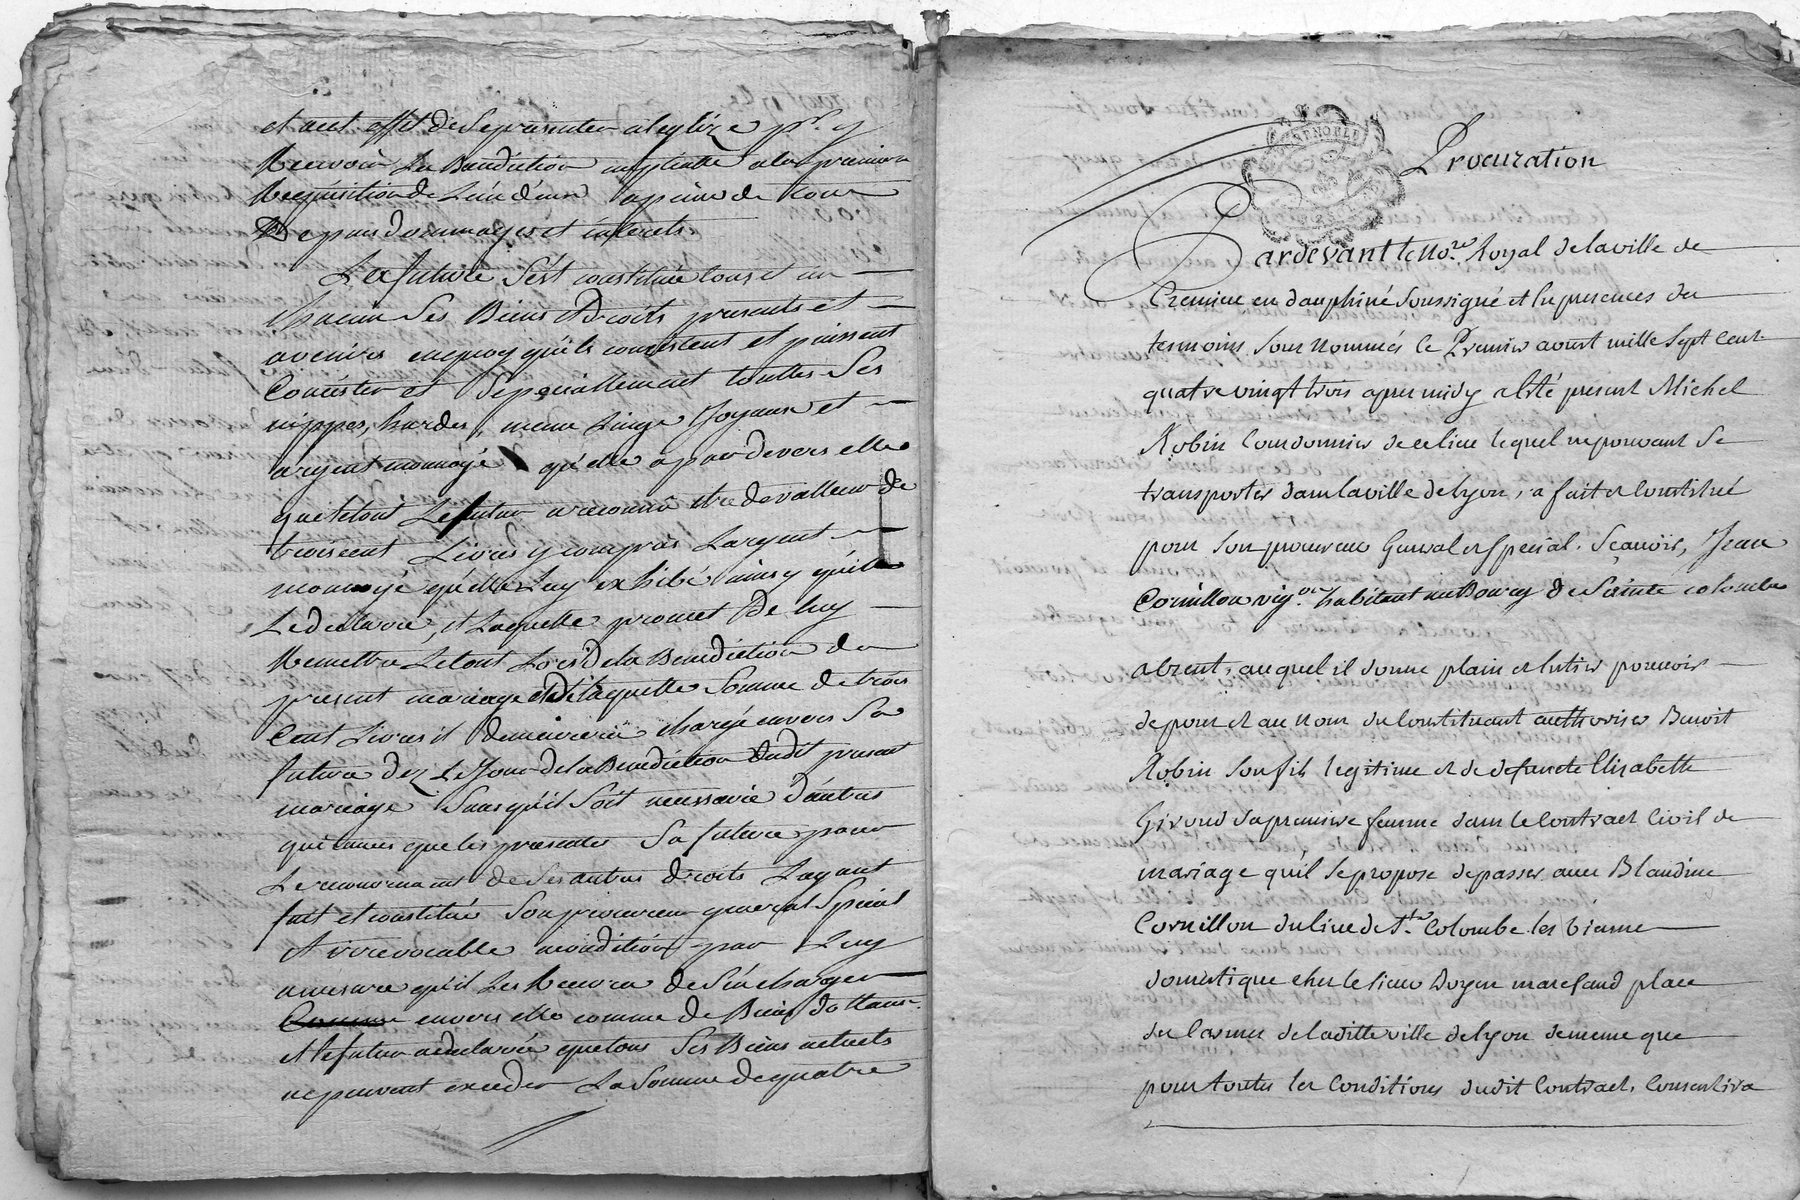 et acet effet de Sepresenter aleglize pr. y
Recevoir La Benediction nuptialle ala premiere
Requisition de L'un d'eux apeine de tous
Depans dommages et interets
La future S'est constituée tous et un
chacun Ses Biens & Droits presents et
avenirs enquoy quils consistent et puissent
Consister et Sepeciallement touttes Ses
nippes, hardes, meme Linge Joyaux et
argent monnoyé qu'elle a pardevers elle
quetetout Lefutur areconnu etre de valleur de
troiscent Livres y compris Largent
monnoyé qu'elle Luy exhibé ainsy quil
Ledeclare, et Laquelle promet De luy
Remettre Letout Lors de la Benediction du
present mariage et de laquelle Somme de trois
Cent Livres il demeurera chargé envers Sa
future dez Le Jour de la Benediction dudit present
mariage Sans qu'il Soit necessaire d'autres
quitances que les presentes Sa future pour
Lerecouvrement de Ses autres droits Layant
fait et constitué Son procureur general Special
et irrevocable acondition par Luy
amesure qu'il Les Recevra de S'en charger
envers elle comme de Biens dottaux
et lefutur adeclaré quetous Ses Biens actuels
nepeuvent exceder La Somme de quatre
GRENOBLE
Procuration
Pardevant le No.re Royal de la ville de
Cremieu en dauphiné Soussigné et les presences des
temoins Sous nommés le Premier aoust mille Sept Cent
quatre vingt trois apres midy a êté present Michel
Robin Cordonnier de ce lieu lequel ne pouvant Se
transporter dans la ville de lyon, a fait et Constitué
pour Son procureur General et Special. Sçavoir, Jean
Cornillon vig.on habitant au Bourg de Sainte colombe
absent, auquel il donne plain et Entier pouvoir
de pour et au nom du Constituant authoriser Benoit
Robin Son fils legitime et de defuncte Elisabeth
Giroud Sa premiere femme dans le Contract Civil de
mariage qu'il Se propose de passer avec Blandine
Cornillon du lieu de Ste. Colombe les Vienne
domestique chez le Sieur Doyen marchand place
des Carmes de laditte ville de lyon de meme que
pour toutes les Conditions dudit Contract, Consentira